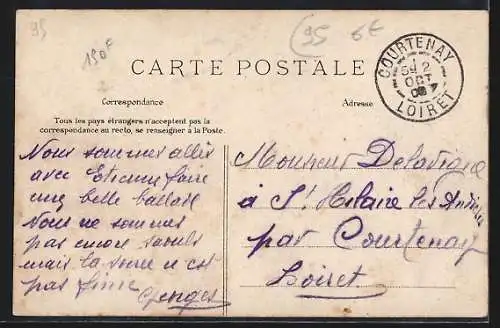 95
150F
95 6€
CARTE POSTALE
COURTENAY
5H 2
OCT
08
LOIRET
Correspondance
Adresse
Tous les pays étrangers n'acceptent pas la
correspondance au recto, se renseigner à la Poste.
Nous sommes allés
avec Etienne faire
une belle ballade
Nous ne sommes
pas encore saouls
mais la soirée n'est
pas finie
Georges
Monsieur Delavigne
à St Hilaire les Andrésis
par Courtenay
Loiret